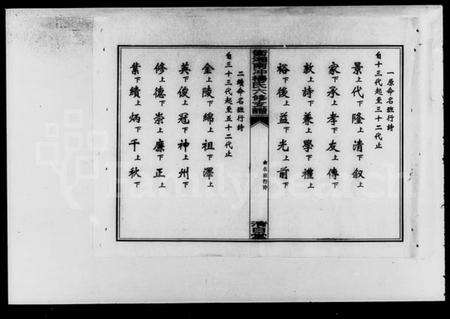 一原命名班行詩
自十三代起至三十二代止
景上代下隆上清下叙上
家下承上孝下友上傳下
敦上詩下兼上學下禮上
裕下後上益下光上前下
氏六修支譜
命名班行詩
清白堂
二續命名班行詩
自三十三代起至五十二代止
金上陵下綿上祖下澤上
英下俊上冠下神上州下
修上德下崇上廉下正上
業下績上炳下千上秋下